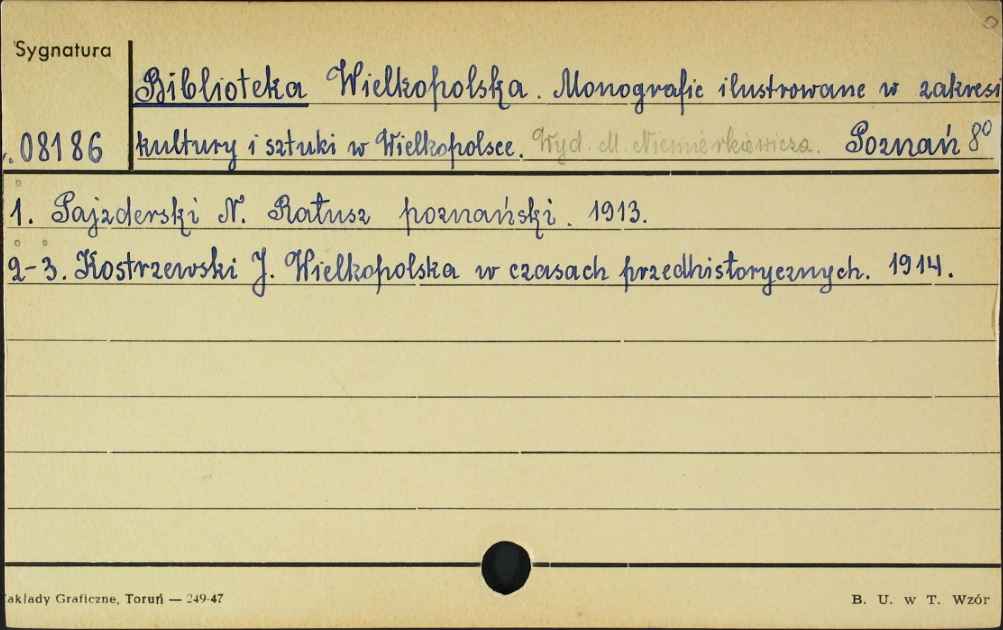 Sygnatura
Biblioteka Wielkopolska. Monografie ilustrowane w zakresi
08186 kultury i sztuki w Wielkopolsce. Wyd. M. Niemierkiewicza. Poznań 8°
1. Pajzderski N. Ratusz poznański. 1913.
2-3. Kostrzewski J. Wielkopolska w czasach przedhistorycznych. 1914.
akłady Graficzne, Toruń — 249-47
B. U. w T. Wzór